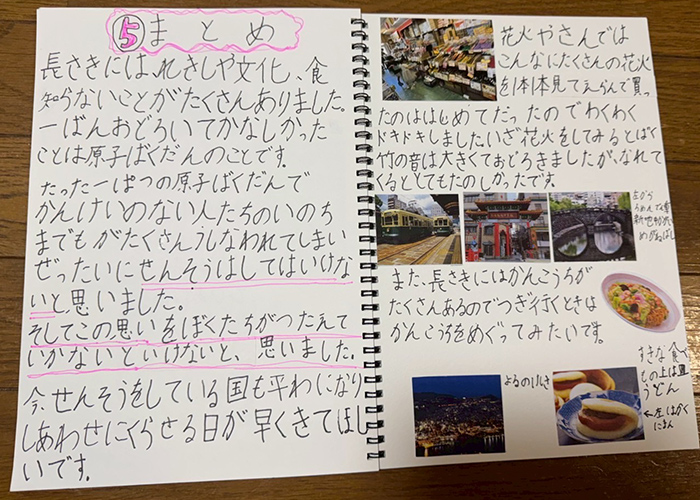 ⑤まとめ
長さきには、れきしや文化、食
知らないことがたくさんありました。
一ばんおどろいてかなしかった
ことは原子ばくだんのことです。
たった一ぱつの原子ばくだんで
かんけいのない人たちのいのち
までもがたくさんうしなわれてしまい
ぜったいにせんそうはしてはいけな
いと思いました。
そしてこの思いをぼくたちがつたえて
いかないといけないと、思いました。
今、せんそうをしている国も平わになり
しあわせにくらせる日が早くきてほし
いです。
花火やさんでは
こんなにたくさんの花火
を1本1本見てえらんで買っ
たのははじめてだったのでわくわく
ドキドキしました。いざ花火をしてみるとばく
竹の音は大きくておどろきましたが、なれて
くるととてもたのしかったです。
左から
ろめんでん車
新地中か
めがねばし
また、長さきにはかんこうちが
たくさんあるのでつぎ行くときは
かんこうちをめぐってみたいです。
すきな食べ
もの上は皿
うどん
←左はかく
にまん
よるの